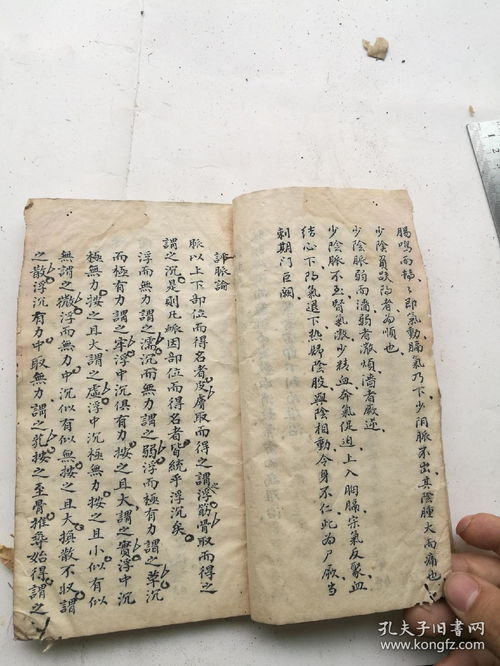 腸鳴而
即氣動膈氣乃下少陰脉不出其陰腫大而痛也
少陰負趺陽者為順也
少陰脉弱而濇弱者微煩濇者厥逆
少陰脉不至腎氣微少精血奔氣促迫上入胸膈宗氣反聚血
结心下陽氣退下熱歸陰股與陰相動令身不仁此為尸厥當
刺期门巨闕
評脉論
脉以上下部位而得名者皮膚取而得之謂浮筋骨取而得之
謂之沉是則凡脉因部位而得名者皆統乎浮沉矣
浮而無力謂之濡沉而無力謂之弱浮而極有力謂之革沉
而極有力謂之牢浮中沉俱有力按之且大謂之實浮中沉
極無力按之且大謂之虛浮中沉極無力按之且小似有似
無謂之微浮而無力中沉似有似無按之且大渙散不收謂
之散浮沉有力中取無力謂之芤按之至骨推尋始得謂之
孔夫子旧书网
www.kongfz.com